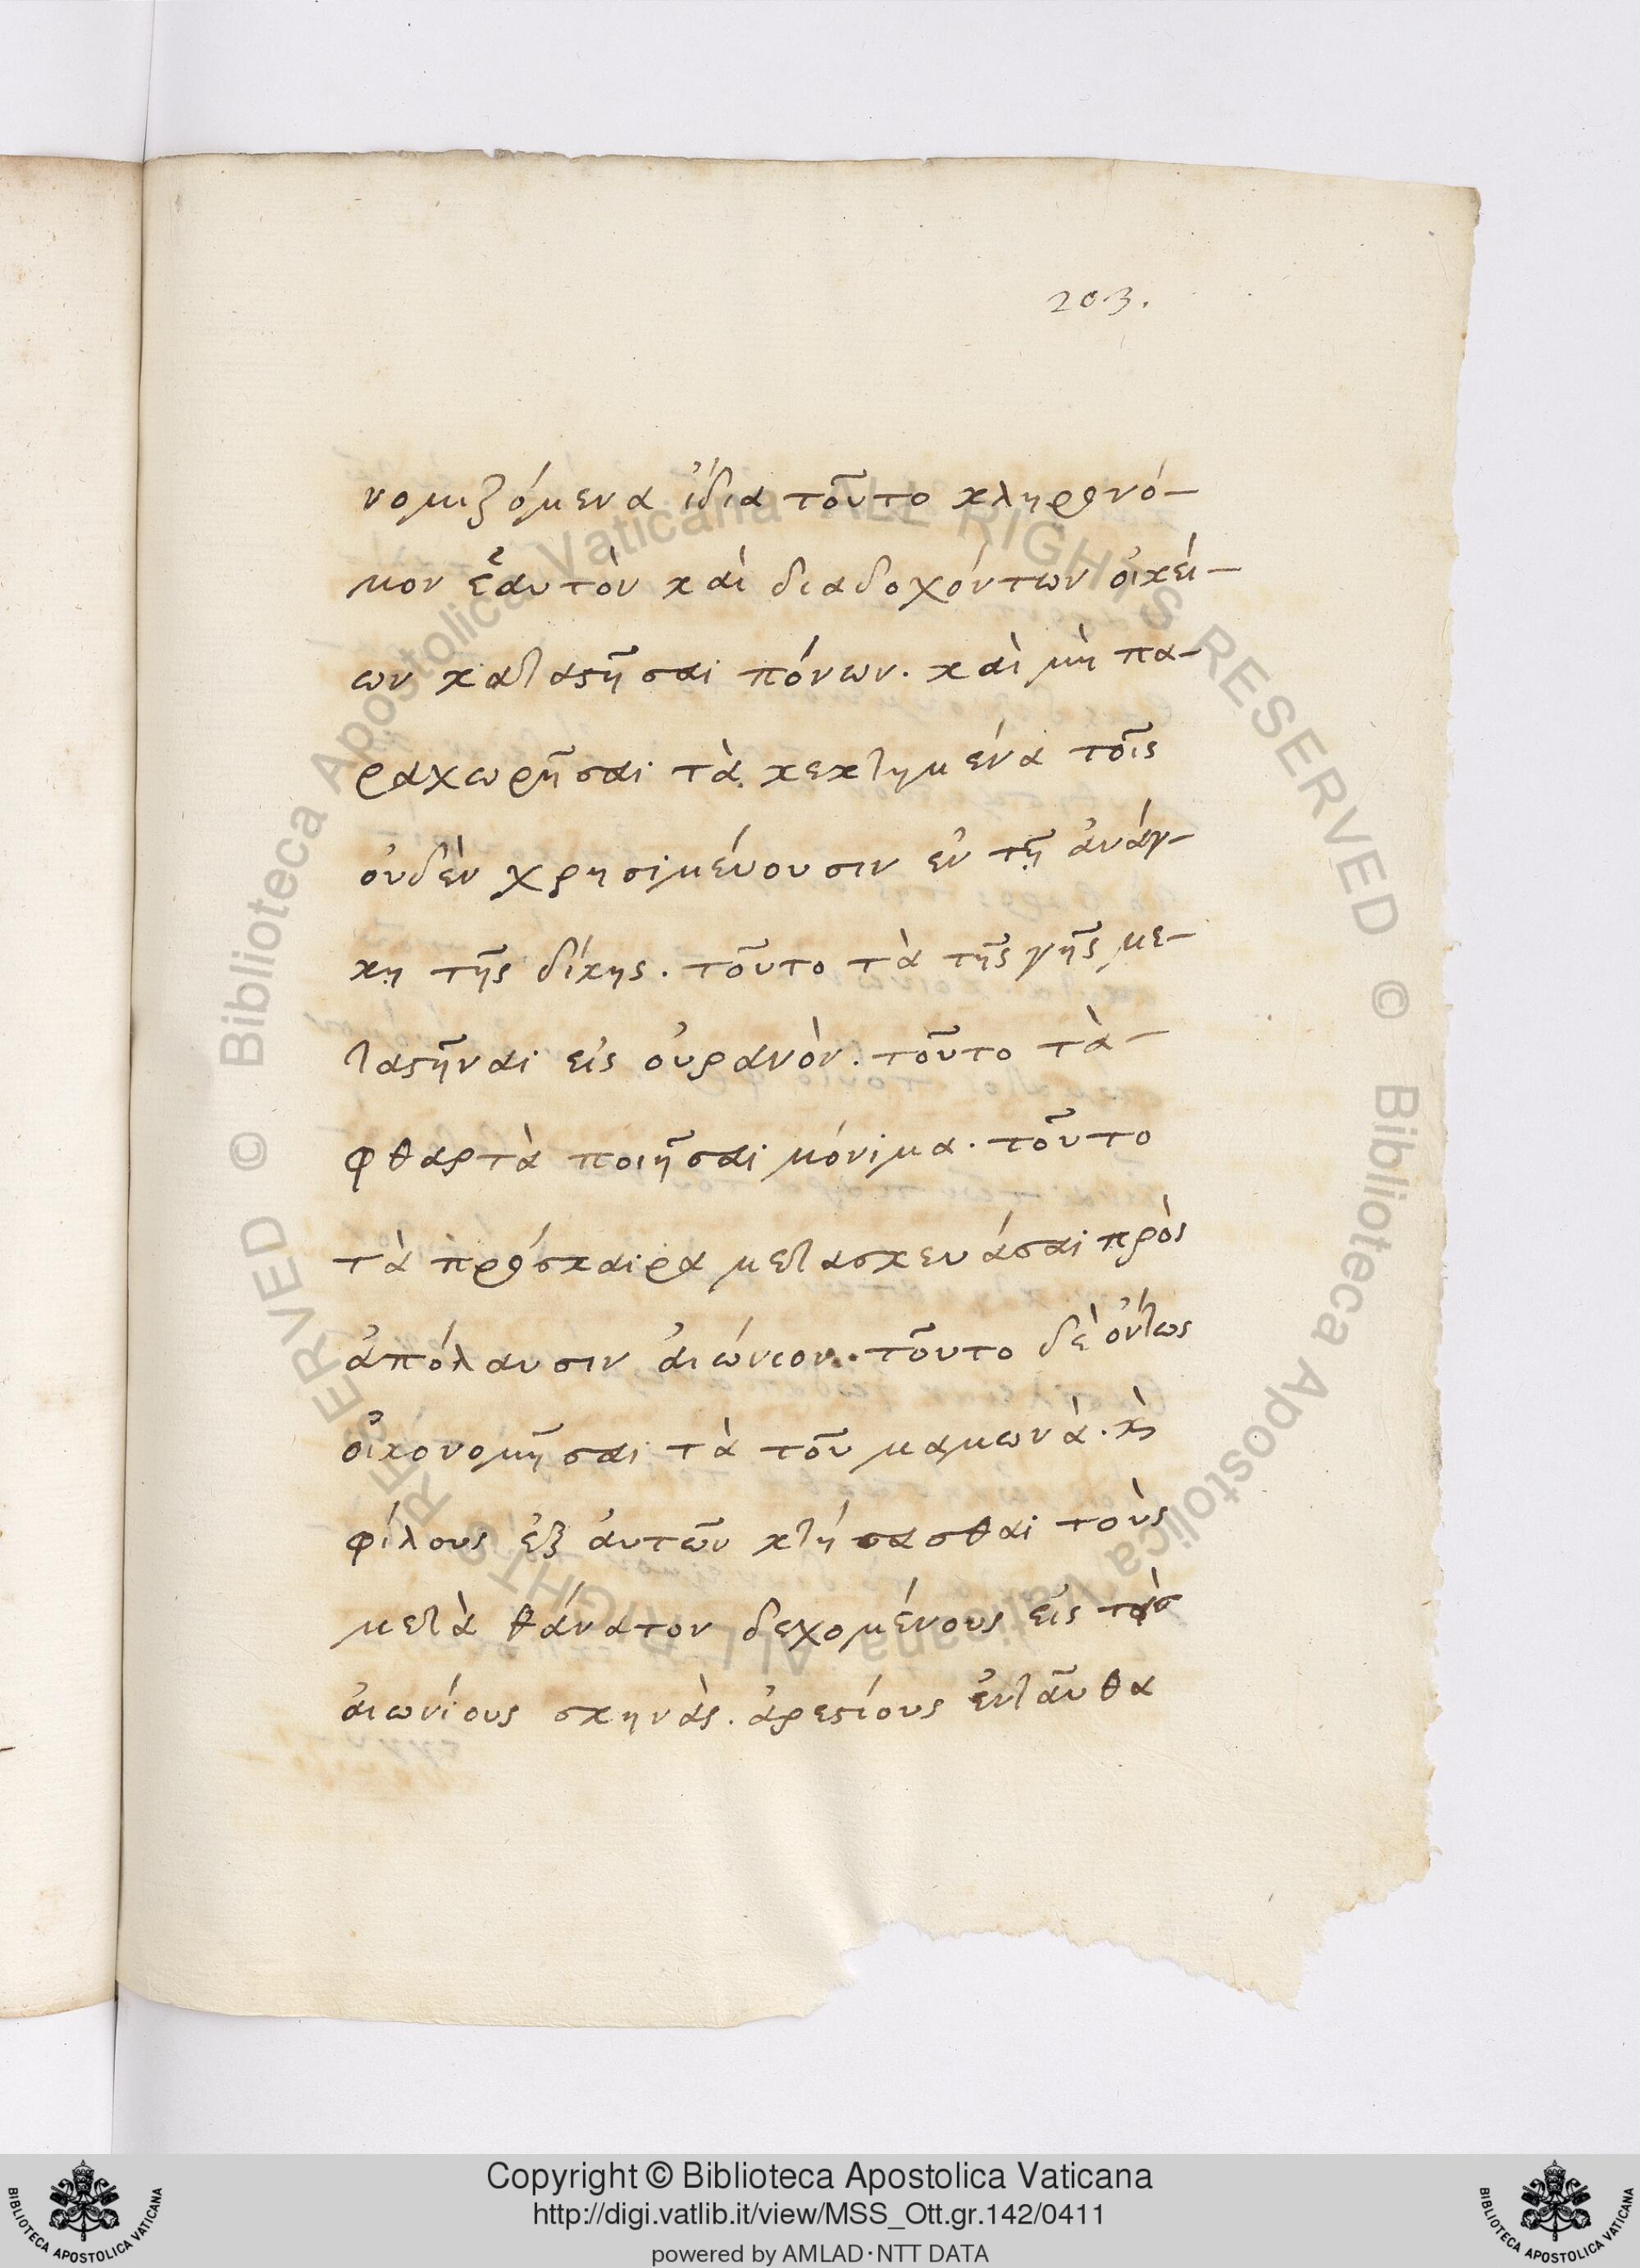 203.
νομιζόμενα ἴδια τοῦτο κληρονό-
μον ἑαυτὸν καὶ διαδοχόντων οἰκεί-
ων καταστῆσαι πόνων. καὶ μὴ πα-
ραχωρῆσαι τὰ κεκτημένα τοῖς
οὐδὲν χρησιμεύουσιν ἐν τῇ ἀνάγ-
κῃ τῆς δίκης. τοῦτο τὰ τῆς γῆς με-
ταστῆναι εἰς οὐρανὸν. τοῦτο τὰ-
φθαρτὰ ποιῆσαι μόνιμα. τοῦτο
τὰ πρόσκαιρα μετασκευάσαι πρὸς
ἀπόλαυσιν αἰώνιον. τοῦτο δὲ ὄντως
οἰκονομῆσαι τὰ τοῦ μαμωνὰ. κὴ
φίλους ἐξ αὐτῶν κτήσασθαι τοὺς
μετὰ θάνατον δεχομένους εἰς τὰς
αἰωνίους σκηνὰς. ἀρεστίους ἐνταῦθα
Biblioteca Apostolica Vaticana ALL RIGHTS RESERVED ©
Biblioteca Apostolica Vaticana ALL RIGHTS RESERVED ©
Copyright © Biblioteca Apostolica Vaticana
http://digi.vatlib.it/view/MSS_Ott.gr.142/0411
powered by AMLAD·NTT DATA
BIBLIOTECA APOSTOLICA VATICANA
BIBLIOTECA APOSTOLICA VATICANA